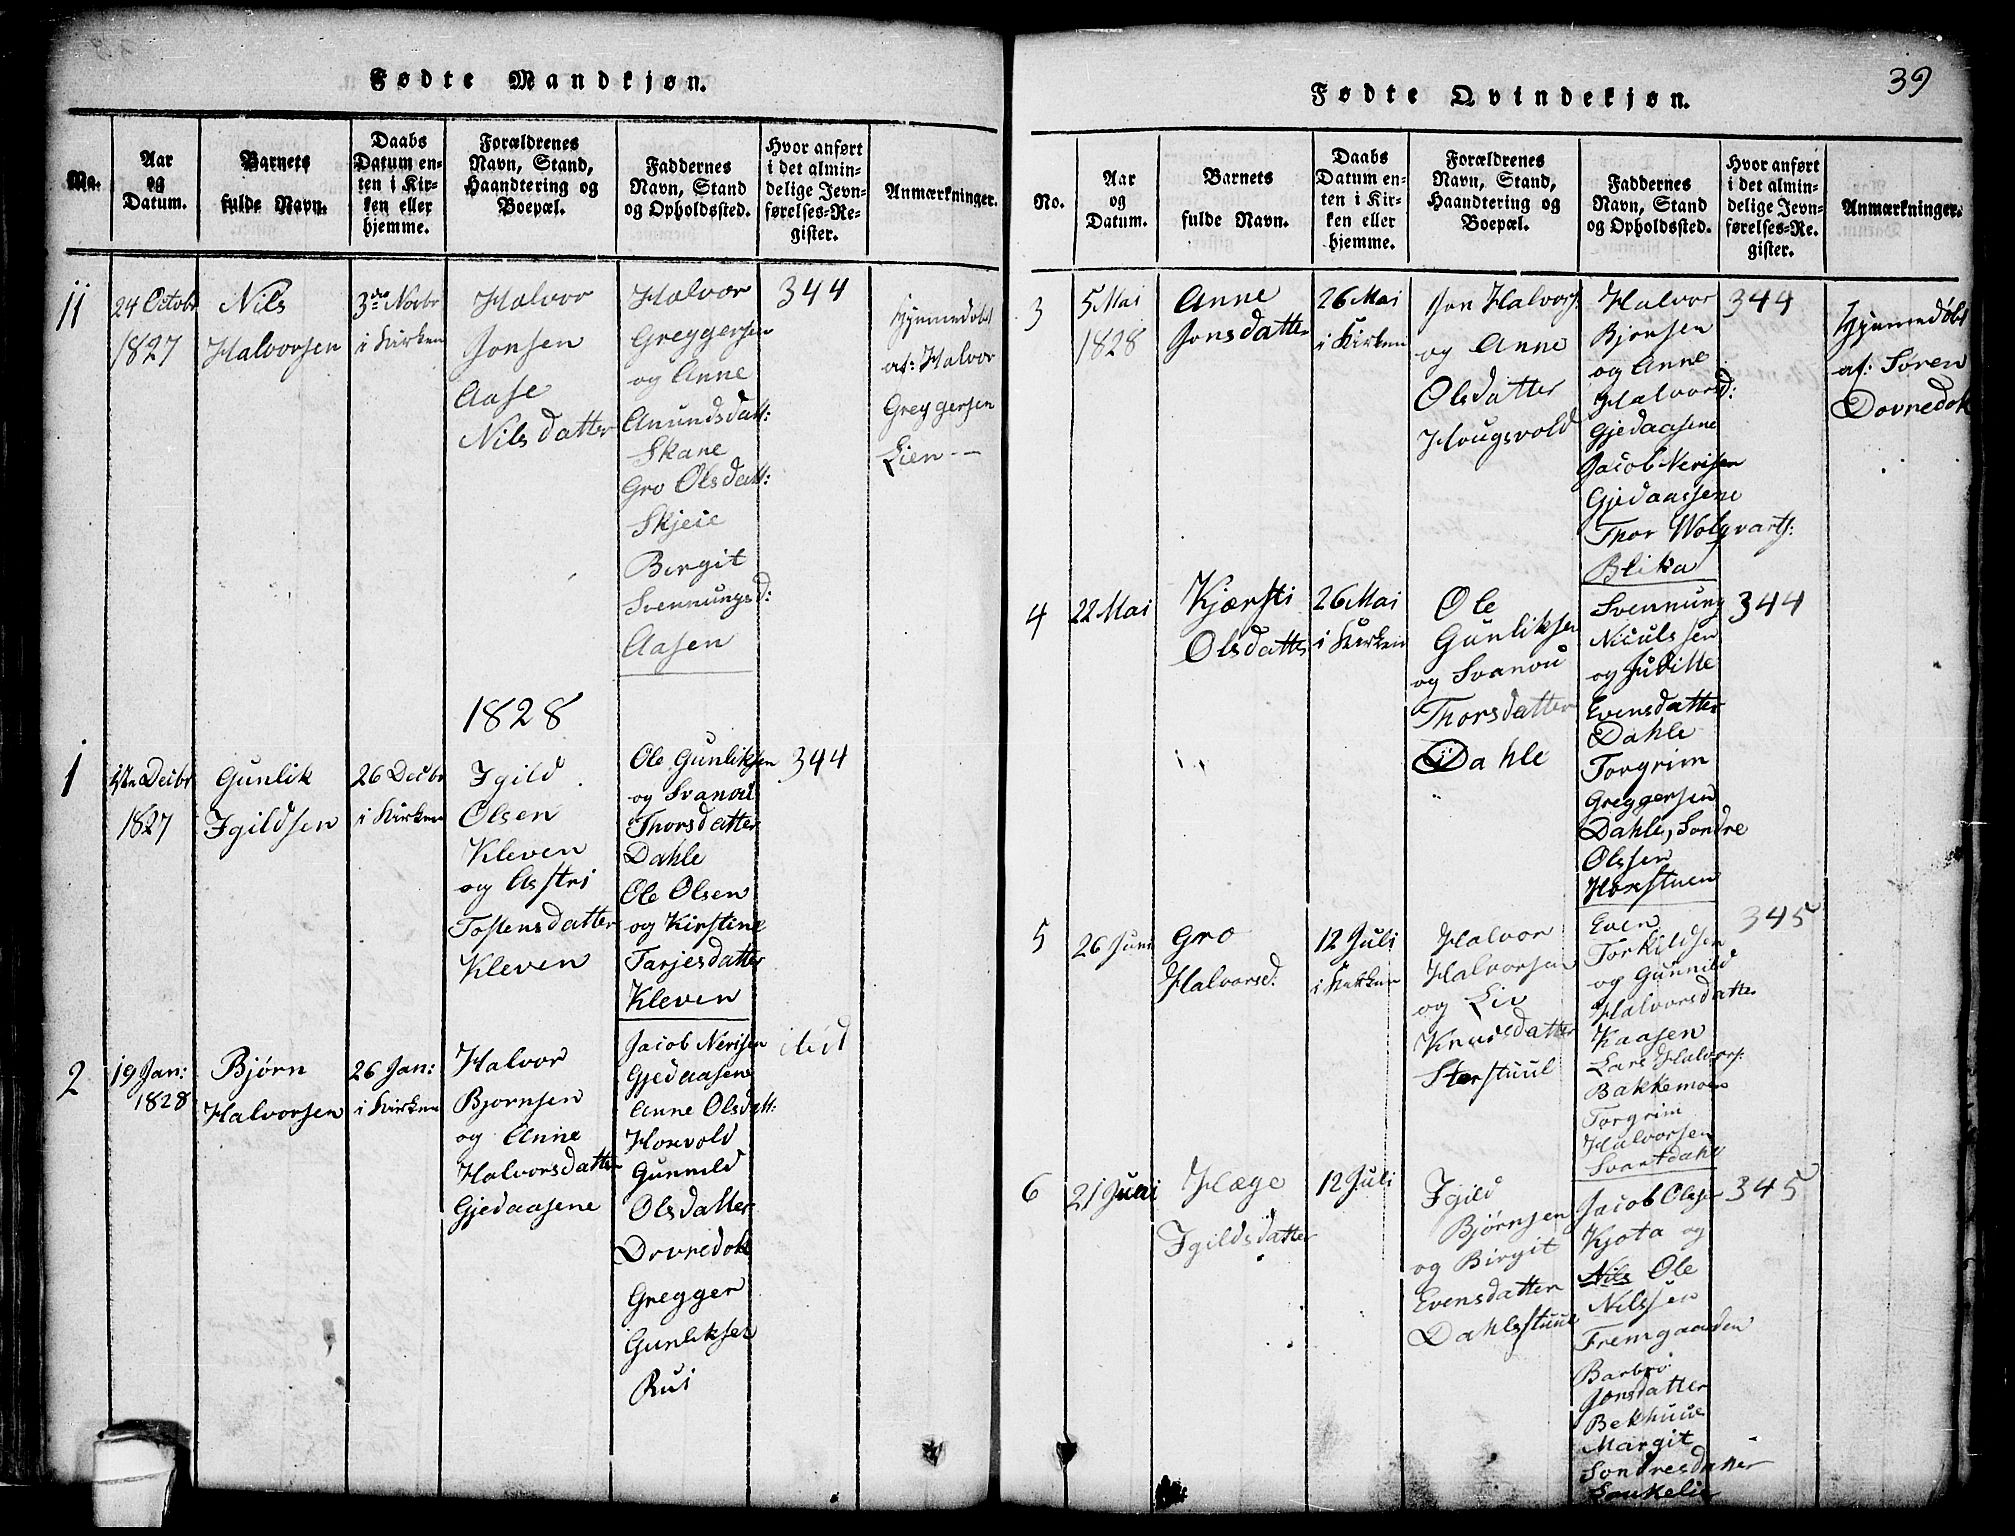 39
Fødte Mandkjøn.
No.
Aar
og
Datum.
Barnets
fulde Navn.
Daabs
Datum en-
ten i Kir-
ken eller
hjemme.
Forældrenes
Navn, Stand,
Haandtering og
Boepæl.
Faddernes
Navn, Stand
og Opholdssted.
Hvor anført
i det almin-
delige Jevn-
førelses-Re-
gister.
Anmærkninger.
11
24 Octobr
1827
Nils
Halvorsen
3de Novbr
i Kirken
Halvor
Jonsen
Aase
Nilsdatter
Halvor
Greggersen
og Anne
Anundsdatt:
Skane
Gro Olsdatt:
Skjeie
Bergit
Svennungsd:
Aasen
344
Hjemmedøbt
af: Halvor
Greggersen
Lien --
1828
1
Decbr
1827
Gunlik
Igildsen
26 Decbr
i Kirken
Igild
Olsen
Kleven
og Astri
Tostensdatter
Kleven
Ole Gunliksen
og Svanou
Thorsdatter
Dahle
Ole Olsen
og Kirstine
Tarjesdatter
Kleven
344
2
19 Jan:
1828
Bjørn
Halvorsen
26 Jan:
i Kirken
Halvor
Bjornsen
og Anne
Halvorsdatter
Gjedaasene
Jacob Nerisen
Gjedaasene
Anne Olsdatt:
Hoxvold
Gunnild
Olsdatter
Dovnedok
Gregger
Gunliksen
Rui
Fødte Qvindekjøn.
No.
Aar
og
Datum.
Barnets
fulde Navn.
Daabs
Datum en-
ten i Kir-
ken eller
hjemme.
Forældrenes
Navn, Stand,
Haandtering og
Boepæl.
Faddernes
Navn, Stand
og Opholdssted.
Hvor anført
i det almin-
delige Jevn-
førelses-Re-
gister.
Anmærkninger.
3
5 Mai
1828
Anne
Jonsdatter
26 Mai
i Kirken
Jon Halvors:
og Anne
Olsdatter
Hougsvold
Halvor
Bjonsen
og Anne
Halvorsd:
Gjedaasene
Jacob Nerisen
Gjedaassene
Thor Wolqvarts:
Blika
344
Hjemmedøbt
af: Søren
Dovnedok
4
22 Mai
Kjærsti
Olsdatter
26 Mai
i Kirken
Ole
Gunliksen
og Svanou
Thorsdatter
Dahle
Svennung
Niculssen
og Juditte
Evensdatter
Dahle
Torgrim
Greggersen
Dahle, Sondre
Olssen
Hoxstuen
344
5
26 Juni
Gro
Halvorsd:
12 Juli
i Kirken
Halvor
Halvorsen
og Liv
Knudsdatter
Storstuul
Even
Torkildsen
og Gunnild
Halvorsdatter
Kaasen
Lars Halvors:
Bakkemoen
Torgrim
Halvorsen
Svartdahl
345
6
21 Juni
Hæge
Igildsdatter
12 Juli
Igild
Bjørnsen
og Birgit
Evensdatter
Dahlsstuue
Jacob Olssen
Kjota og
Nils Ole
Nilssen
Fremgaarden
Barbro
Jonsdatter
Bekhuue
Margit
Sondresdatter
345